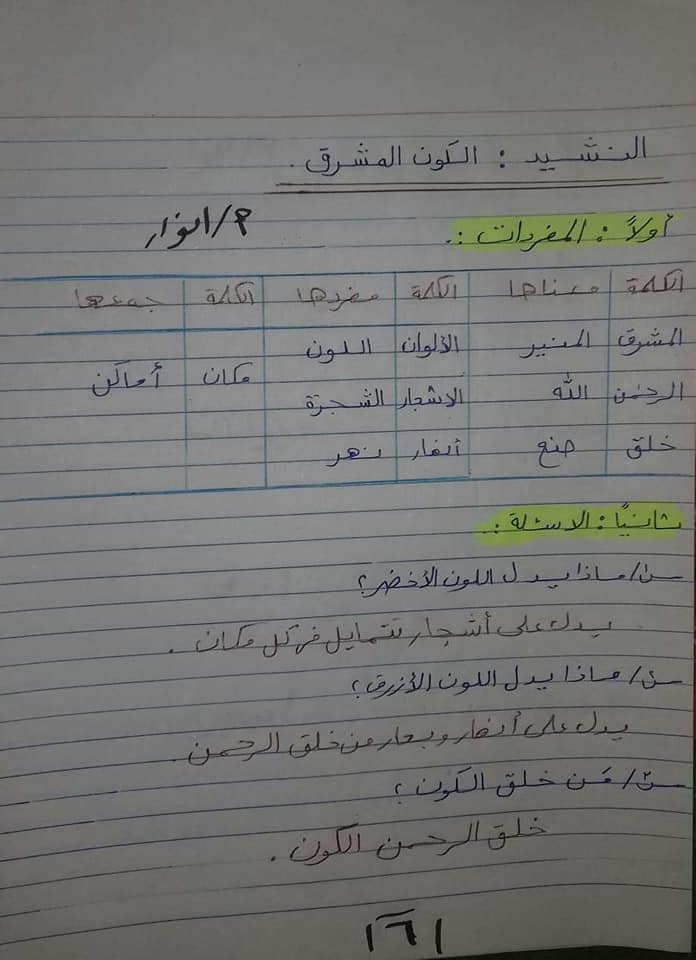 النشيد : الكون المشرق .
م/انوار
أولاً : المفردات :.
الكلمة معناها الكلمة مفردها الكلمة جمعها
المشرق المنير الألوان اللون
مكان أماكن
الرحمن الله الاشجار الشجرة
خلق صنع أنهار نهر
ثانيًا : الاسئلة :
س١/ ماذا يدل اللون الأخضر؟
يدل على أشجار تتمايل في كل مكان .
س٢/ ماذا يدل اللون الأزرق؟
يدل على أنهار وبحار من خلق الرحمن .
س٣/ مَن خلق الكون ؟
خلق الرحمن الكون .